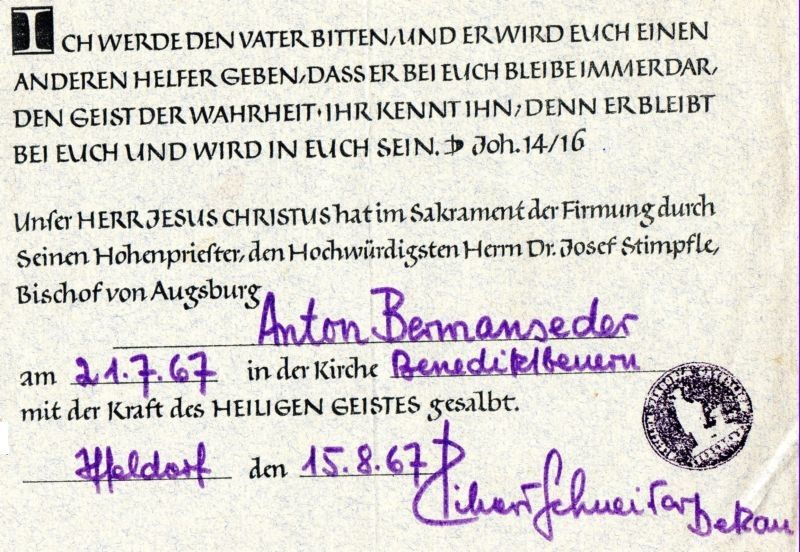 ICH WERDE DEN VATER BITTEN, UND ER WIRD EUCH EINEN
ANDEREN HELFER GEBEN, DASS ER BEI EUCH BLEIBE IMMERDAR,
DEN GEIST DER WAHRHEIT · IHR KENNT IHN, DENN ER BLEIBT
BEI EUCH UND WIRD IN EUCH SEIN. Joh. 14/16
Unser HERR JESUS CHRISTUS hat im Sakrament der Firmung durch
Seinen Hohenpriester, den Hochwürdigsten Herrn Dr. Josef Stimpfle,
Bischof von Augsburg
Anton Bermanseder
am 21.7.67 in der Kirche Benediktbeuern
mit der Kraft des HEILIGEN GEISTES gesalbt.
Iffeldorf den 15.8.67
Dekan